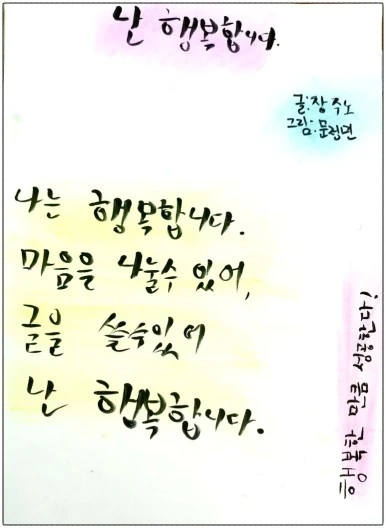 난 행복합니다.
글:장주노
그림:문정면
나는 행복합니다.
마음을 나눌수 있어,
글을 쓸수있어
난 행복합니다.
행복한 만큼 성공한다!